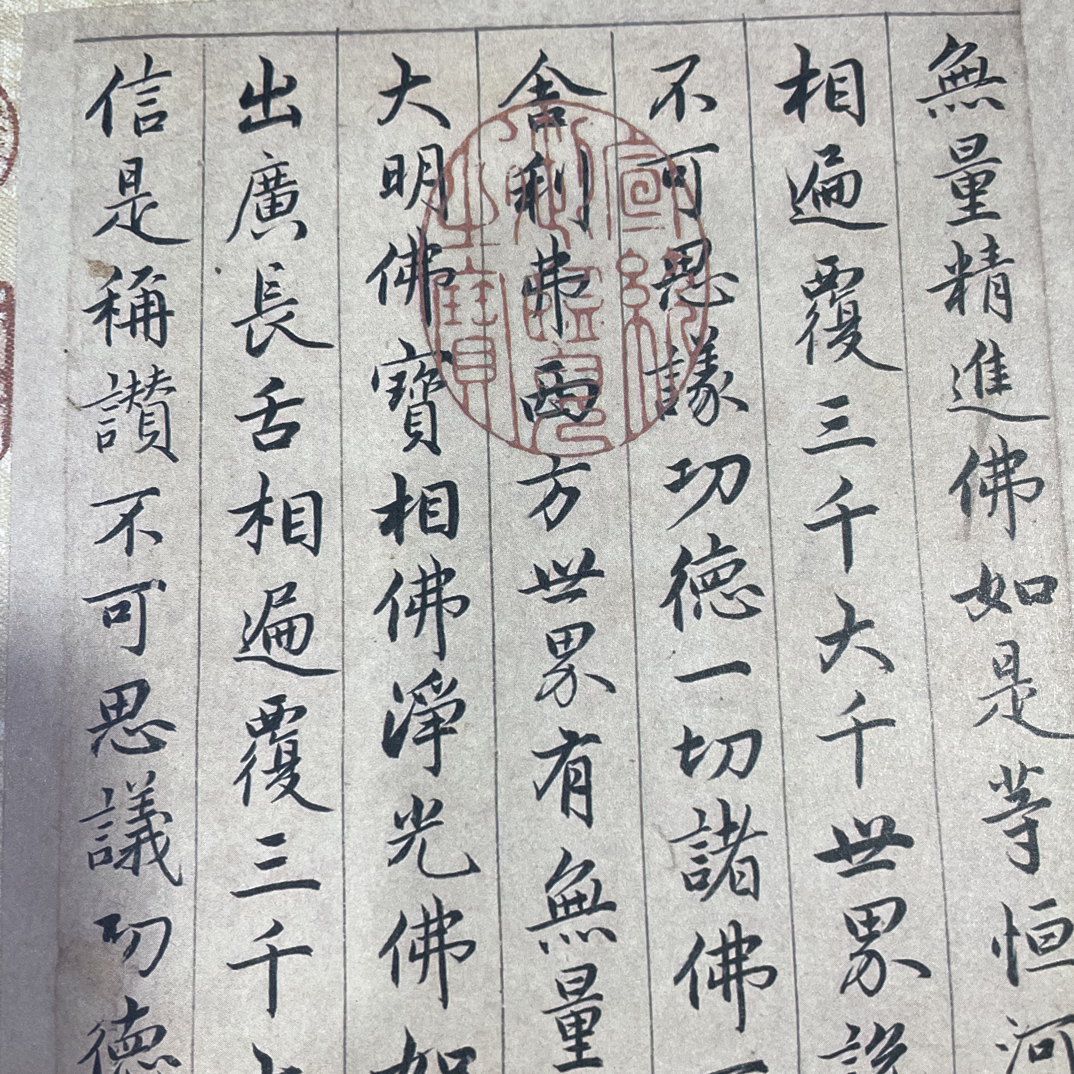 無量精進佛如是等恒河
相遍覆三千大千世界說
不可思議功德一切諸佛
舍利弗西方世界有無量
大明佛寶相佛淨光佛如
出廣長舌相遍覆三千
信是稱讚不可思議功德
宣統御覽之寶